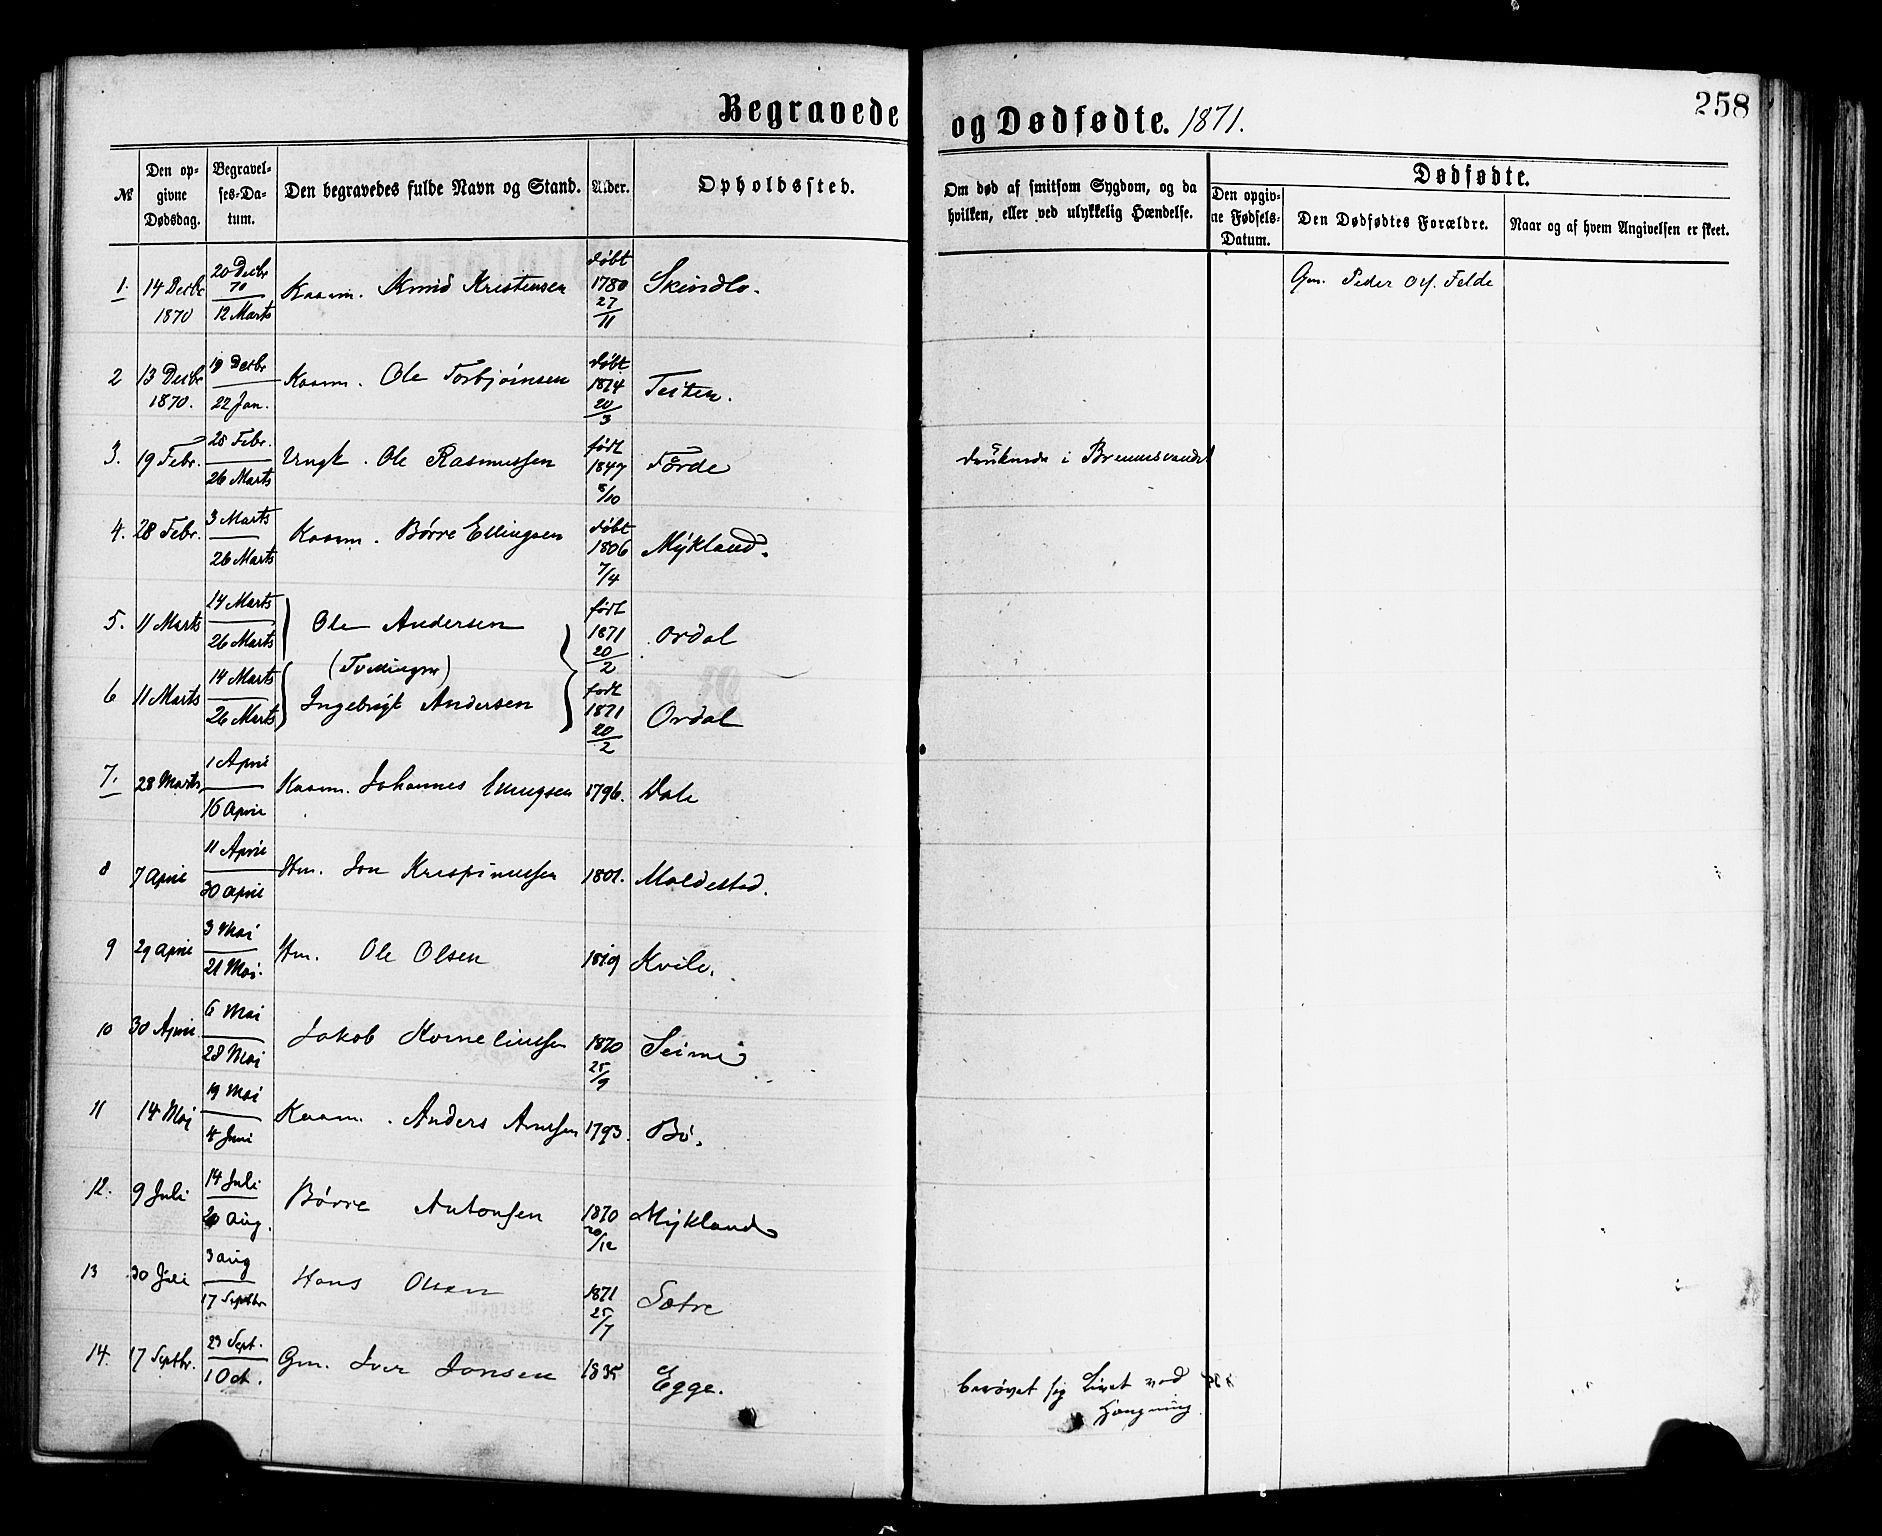 Begravede og Dødfødte. 1871. 258
No. Den opgivne Dødsdag. Begravelses-Datum. Den begravedes fulde Navn og Stand. Alder. Opholdssted. Om død af smitsom Sygdom, og da hvilken, eller ved ulykkelig Hændelse. Dødfødte.
Den opgivne Fødsels-Datum. Den Dødfødtes Forældre. Naar og af hvem Angivelsen er skeet.
1. 14 Decbr 1870 20 Decbr 70 12 Marts Kaarm. Knud Kristensen døbt 1780 27/11 Skinlo. Gm. Peder Ol. Felde
2 13 Decbr 1870. 19 Decbr 22 Jan. Kaarm. Ole Torbjørnsen døbt 1814 20/3 Teiten.
3. 19 Febr. 25 Febr. 26 Marts Ungk. Ole Rasmussen født 1847 8/10 Førde druknede i Bremnesvandet
4. 28 Febr. 3 Marts 26 Marts Kaarm. Børre Ellingsen døbt 1806 7/4 Mykland.
5. 11 Marts 14 Marts 26 Marts Ole Andersen født 1871 20/2 Ordal
(Tvillinger)
6 11 Marts 14 Marts 26 Marts Ingebrigt Andersen født 1871 20/2 Ordal
7. 28 Marts 1 April 16 April Kaarm. Johannes 1796. Dale
8 7 April 11 April 30 April Hm. Jon Krispinussen 1801. Moldestad.
9 29 April 3 Mai 21 Mai. Hm. Ole Olsen 1819 Kvile.
10 30 April 6 Mai 28 Mai Jakob Korneliussen 1870 25/9 Seime
11 14 Mai 19 Mai 4 Juni Kaarm. Anders Arnesen 1793. Bø.
12. 9 Juli 14 Juli 20 Aug. Børre Antonsen 1870 20/12 Mykland
13 30 Juli 3 Aug 17 Septbr Hans Olsen 1871 25/7 Sætre
14. 17 Septbr. 23 Sept. 1 Oct. Gm. Iver Jonsen 1835 Egge. berøvet sig Livet ved
Hængning.